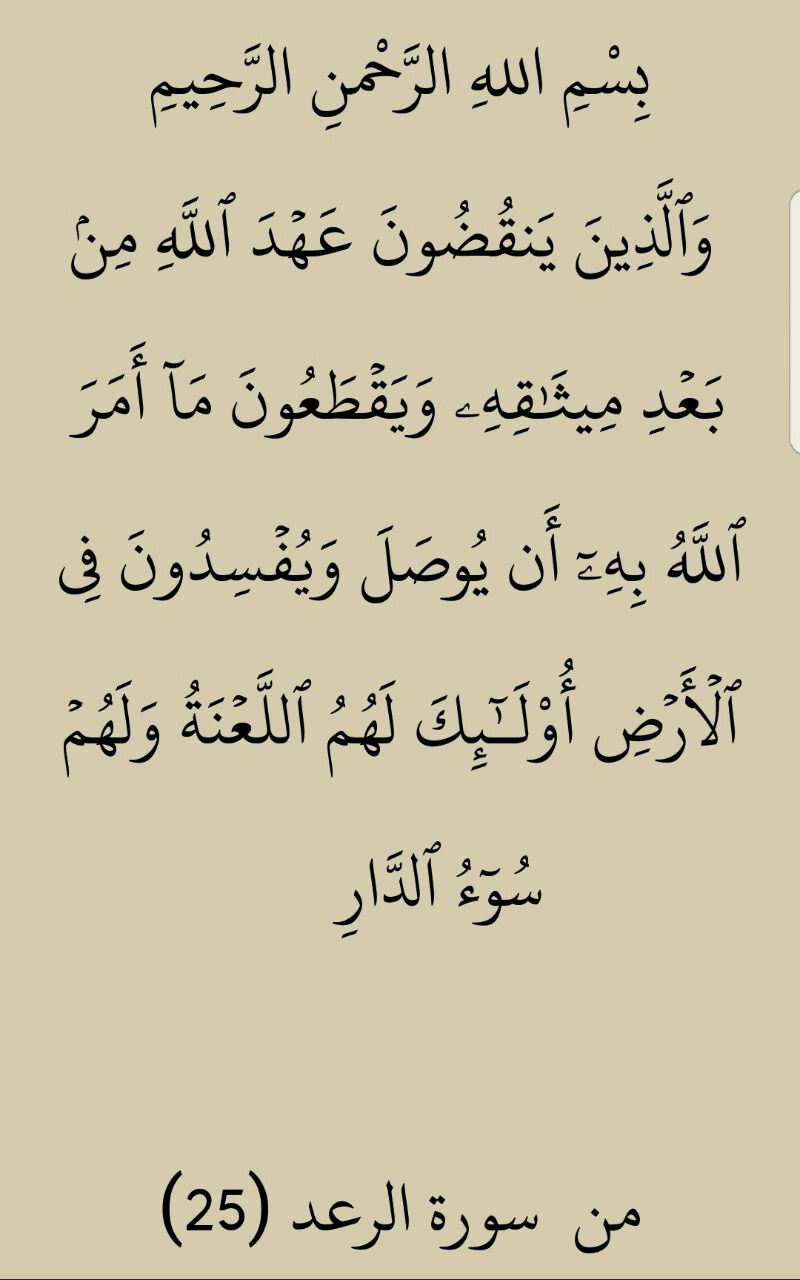 بِسْمِ اللهِ الرَّحْمنِ الرَّحِيمِ
وَٱلَّذِينَ يَنقُضُونَ عَهۡدَ ٱللَّهِ مِنۢ
بَعۡدِ مِيثَٰقِهِۦ وَيَقۡطَعُونَ مَآ أَمَرَ
ٱللَّهُ بِهِۦٓ أَن يُوصَلَ وَيُفۡسِدُونَ فِى
ٱلۡأَرۡضِ أُوْلَـٰٓئِكَ لَهُمُ ٱللَّعۡنَةُ وَلَهُمۡ
سُوٓءُ ٱلدَّارِ
من سورة الرعد (25)